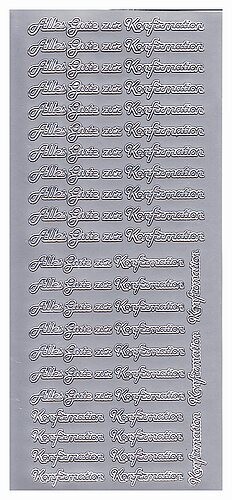 Alles Gute zur Konfirmation
Alles Gute zur Konfirmation
Alles Gute zur Konfirmation
Alles Gute zur Konfirmation
Alles Gute zur Konfirmation
Alles Gute zur Konfirmation
Alles Gute zur Konfirmation
Alles Gute zur Konfirmation
Alles Gute zur Konfirmation
Alles Gute zur Konfirmation
Alles Gute zur Konfirmation
Alles Gute zur Konfirmation
Alles Gute zur Konfirmation
Alles Gute zur Konfirmation
Alles Gute zur Konfirmation
Alles Gute zur Konfirmation
Alles Gute zur Konfirmation
Alles Gute zur Konfirmation
Konfirmation Konfirmation
Konfirmation Konfirmation
Konfirmation Konfirmation
Konfirmation Konfirmation
Konfirmation
Konfirmation